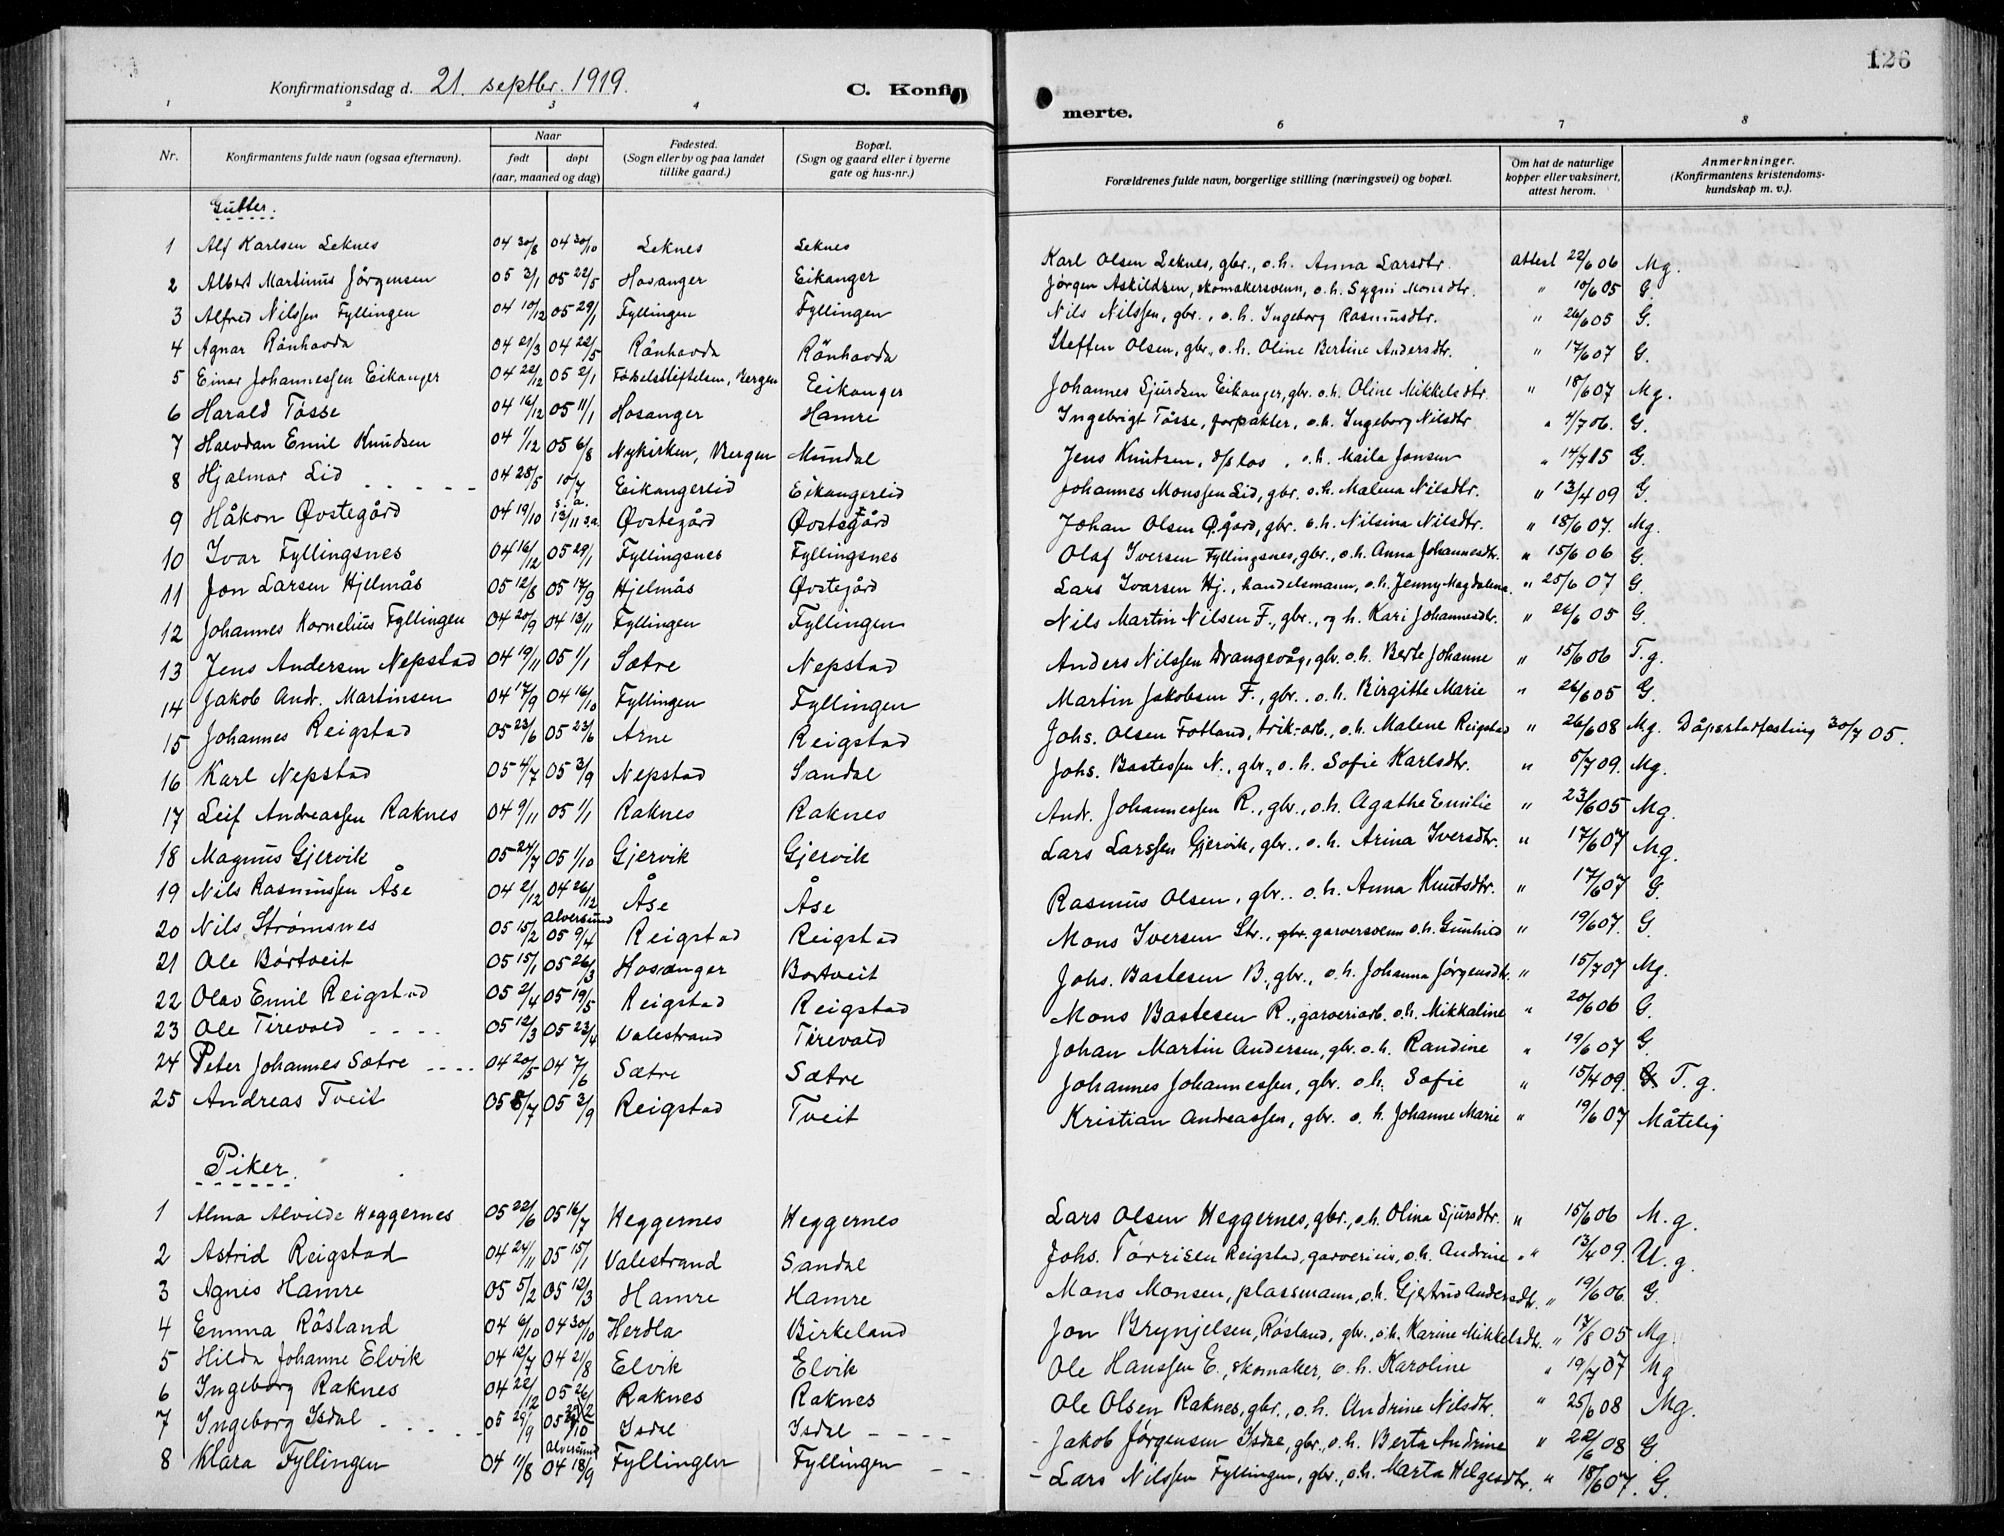 126
Konfirmationsdag d. 21. septbr. 1919. C. Konfir merte.
1 2 3 4 5 6 7 8
Nr. Konfirmantens fulde navn (ogsaa efternavn). Naar født døpt (aar, maaned og dag) Fødested. (Sogn eller by og paa landet tillike gaard.) Bopæl. (Sogn og gaard eller i byerne gate og hus-nr.) Forældrenes fulde navn, borgerlige stilling (næringsvei) og bopæl. Om hat de naturlige kopper eller vaksinert, attest herom. Anmerkninger. (Konfirmantens kristendomskundskap m. v.).
Gutter.
1 Alf Karlsen Leknes 04 30/8 04 30/10 Leknes Leknes Karl Olsen Leknes, gbr., o.h. Anna Larsdtr. attest 22/6 06 Mg.
2 Albert Martinus Jørgensen 05 2/1 05 22/5 Hosanger Eikanger Jørgen Askildsen, skomakersvenn, o.h. Sygni Monsdtr. " 10/6 05 G.
3 Alfred Nilssen Fyllingen 04 10/12 05 29/1 Fyllingen Fyllingen Nils Nilssen, gbr., o.h. Ingeborg Rasmusdtr. " 26/6 05 G.
4 Agnar Rånhovda 04 21/3 04 22/5 Rånhovda Rånhovda Steffen Olsen, gbr., o.h. Oline Bertine Andersdtr. " 17/6 07 G.
5 Einar Johannessen Eikanger 04 22/12 05 2/1 Fødselsstiftelsen, Bergen Eeikanger Johannes Sjursen Eikanger, gbr. o.h. Oline Mikkelsdtr. " 18/6 07 Mg.
6 Harald Tösse 04 16/12 05 11/1 Hosanger Hamre Ingebrigt Tösse, forpakter, o.h. Ingeborg Nilsdtr " 4/7 06. G.
7 Halvdan Emil Knudsen 04 1/12 05 6/8 Nykirken, Bergen Mundal Jens Knutsen, d/s los, o.h. Maila Jonsen " 14/7 15 G.
8 Hjalmar Lid 04 28/5 10/7 s.a. Eikangerlid Eikangerlid Johannes Monssen Lid, gbr. o.h. Malena Nilsdtr. " 13/4 09 G.
9 Håkon Øvstegård 04 19/10 13/11 s.a. Øvstegård Øvstegård Johan Olsen Ø.gård, gbr. o.h. Nilsina Nilsdtr. " 18/6 07. Mg.
10 Ivar Fyllingsnes 04 16/12 05 29/1 Fyllingsnes Fyllingsnes Olaf Iversen Fyllingsnes, gbr., o.h. Anna Johannesdtr. " 15/6 06 G.
11 Jon Larsen Hjelmås 05 12/8 05 17/9 Hjelmås Øvstegård Lars Ivarsen Hj., handelsmann, o.h. Jenny Magdalena. " 25/6 07 G.
12 Johannes Kornelius Fyllingen 04 20/9 04 13/11 Fyllingen Fyllingen Nils Martin Nilsen F., gbr., og h. Kari Johannesdtr. " 26/6 05 G.
13 Jens Andersen Nepstad 04 19/11 05 1/1 Sætre Nepstad Anders Nilssen Drangevåg, gbr. o.h. Berte Johanne " 15/6 06 T.g.
14 Jakob Andr. Martinsen 04 17/9 04 16/10 Fyllingen Fyllingen Martin Jakobsen F., gbr., o.h. Birgitte Marie " 26/6 05 G.
15 Johannes Reigstad 05 23/6 05 23/6 Arne Reigstad Johs. Olsen Fotland, trik.-arb., o.h. Malene Reigstad " 26/6 08 Mg. Dåpsstadfesting 30/7 05.
16 Karl Nepstad 05 4/7 05 3/9 Nepstad Sandal Johs. Bastessen N., gbr., o.h. Sofie Karlsdtr. " 5/7 09. Mg.
17 Leif Andreassen Raknes 04 9/11 05 1/1 Raknes Raknes Andr. Johannessen R., gbr., o.h. Agathe Emilie " 23/6 05 Mg.
18 Magnus Gjervik 05 24/7 05 1/10 Gjervik Gjervik Lars Larssen Gjervik, gbr., o.h. Arina Iversdtr. " 17/6 07 Mg.
19 Nils Rasmussen Åse 04 2/12 04 26/12 Åse Åse Rasmus Olsen, gbr., o.h. Anna Knutsdtr. " 17/6 07 G.
20 Nils Strømsnes 05 15/2 Alversund 05 9/4 Reigstad Reigstad Mons Iversen Str., gbr. garversvenn o.h. Gunhild " 19/6 07. G.
21 Ole Börtveit 05 15/1 05 26/3 Hosanger Bortveit Johs. Bastesen B., gbr., o.h. Johanna Jörgensdtr. " 15/7 07 Mg.
22 Olav Emil Reigstad 05 2/4 05 19/5 Reigstad Reigstad Mons Bastesen R., garveriarb. o.h. Mikkaline " 20/6 06 G.
23 Ole Tirevold 05 12/3 05 23/4 Valestrand Tirevold Johan Martin Andersen, gbr. o.h. Randine " 19/6 07 G.
24 Peter Johannes Sætre 04 20/5 04 7/6 Sætre Sætre Johannes Johannessen, gbr. o.h. Sofie " 15/4 09. G T.g.
25 Andreas Tveit 05 8/7 05 3/9 Reigstad Tveit Kristian Andreassen, gbr. o.h. Johanne Marie " 19/6 07 Måtelig
Piker.
1 Alma Alvilde Heggernes 05 22/6 05 16/7 Heggernes Heggernes Lars Olsen Heggernes, gbr., o.h. Olina Sjursdtr. " 15/6 06 M.g.
2 Astrid Reigstad 04 24/11 05 15/1 Valestrand Sandal Johs. Torrisen Reigstad, garverieier, o.h. Andrine " 13/4 09. U.g.
3 Agnes Hamre 05 5/2 05 12/3 Hamre Hamre Mons Monsen, plassmann, o.h. Gjertrud Andersdtr. " 19/6 06. G.
4 Emma Rösland 04 6/10 04 30/10 Herdla Birkeland Jon Brynjelsen, Rösland, gbr., o.h. Karine Mikkelsdtr. " 17/8 05 Mg.
5 Hilda Johanne Elvik 04 12/7 04 21/8 Elvik Elvik Ole Hanssen E., skomaker, o.h. Karoline " 19/7 07 Mg
6 Ingeborg Raknes 04 22/12 05 26/2 Raknes Raknes Ole Olsen Raknes, gbr., o.h. Andrine Nilsdtr. " 25/6 08 Mg.
7 Ingeborg Isdal 05 29/9 05 29/10 Isdal Isdal Jakob Jørgensen Isdal, gbr., o.h. Berta Andrine " 22/6 08 G.
8 Klara Fyllingen 04 11/8 Alversund 04 18/9 Fyllingen Fyllingen Lars Nilssen Fyllingen, gbr., o.h. Marta Helgesdtr. " 18/6 07. G.